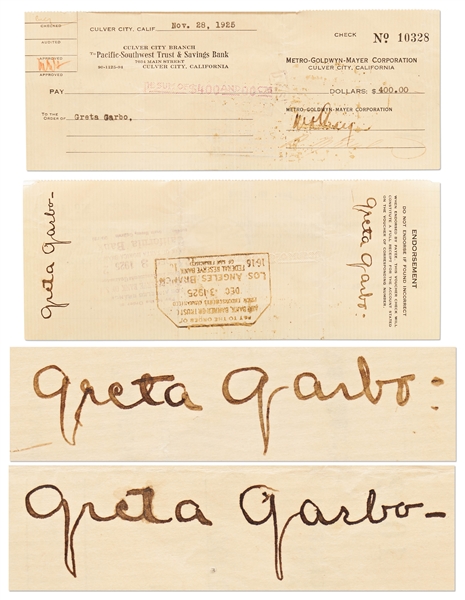 CHECKED
AUDITED
APPROVED
APPROVED
CULVER CITY, CALIF. Nov. 28, 1925
CHECK No 10328
CULVER CITY BRANCH
To Pacific-Southwest Trust & Savings Bank
7024 MAIN STREET
CULVER CITY, CALIFORNIA
METRO-GOLDWYN-MAYER CORPORATION
CULVER CITY, CALIFORNIA
PAY
DOLLARS: $ 400.00
TO THE ORDER OF Greta Garbo,
METRO-GOLDWYN-MAYER CORPORATION
Greta Garbo-
LOS ANGELES BRANCH
FEDERAL RESERVE BANK
OF SAN FRANCISCO
16-16
DEC -3 1925
PAY TO THE ORDER OF
ANY BANK, BANKER OR TRUST
PRIOR ENDORSEMENTS GUARANTEED
Greta Garbo:
ENDORSEMENT
DO NOT ENDORSE IF FOUND INCORRECT
WHEN ENDORSED BY PAYEE, THIS VOUCHER CHECK WILL
CONSTITUTE A FULL RECEIPT FOR THE ACCOUNT STATED
ON THE VOUCHER OF CORRESPONDING NUMBER.
Greta Garbo:
Greta Garbo-